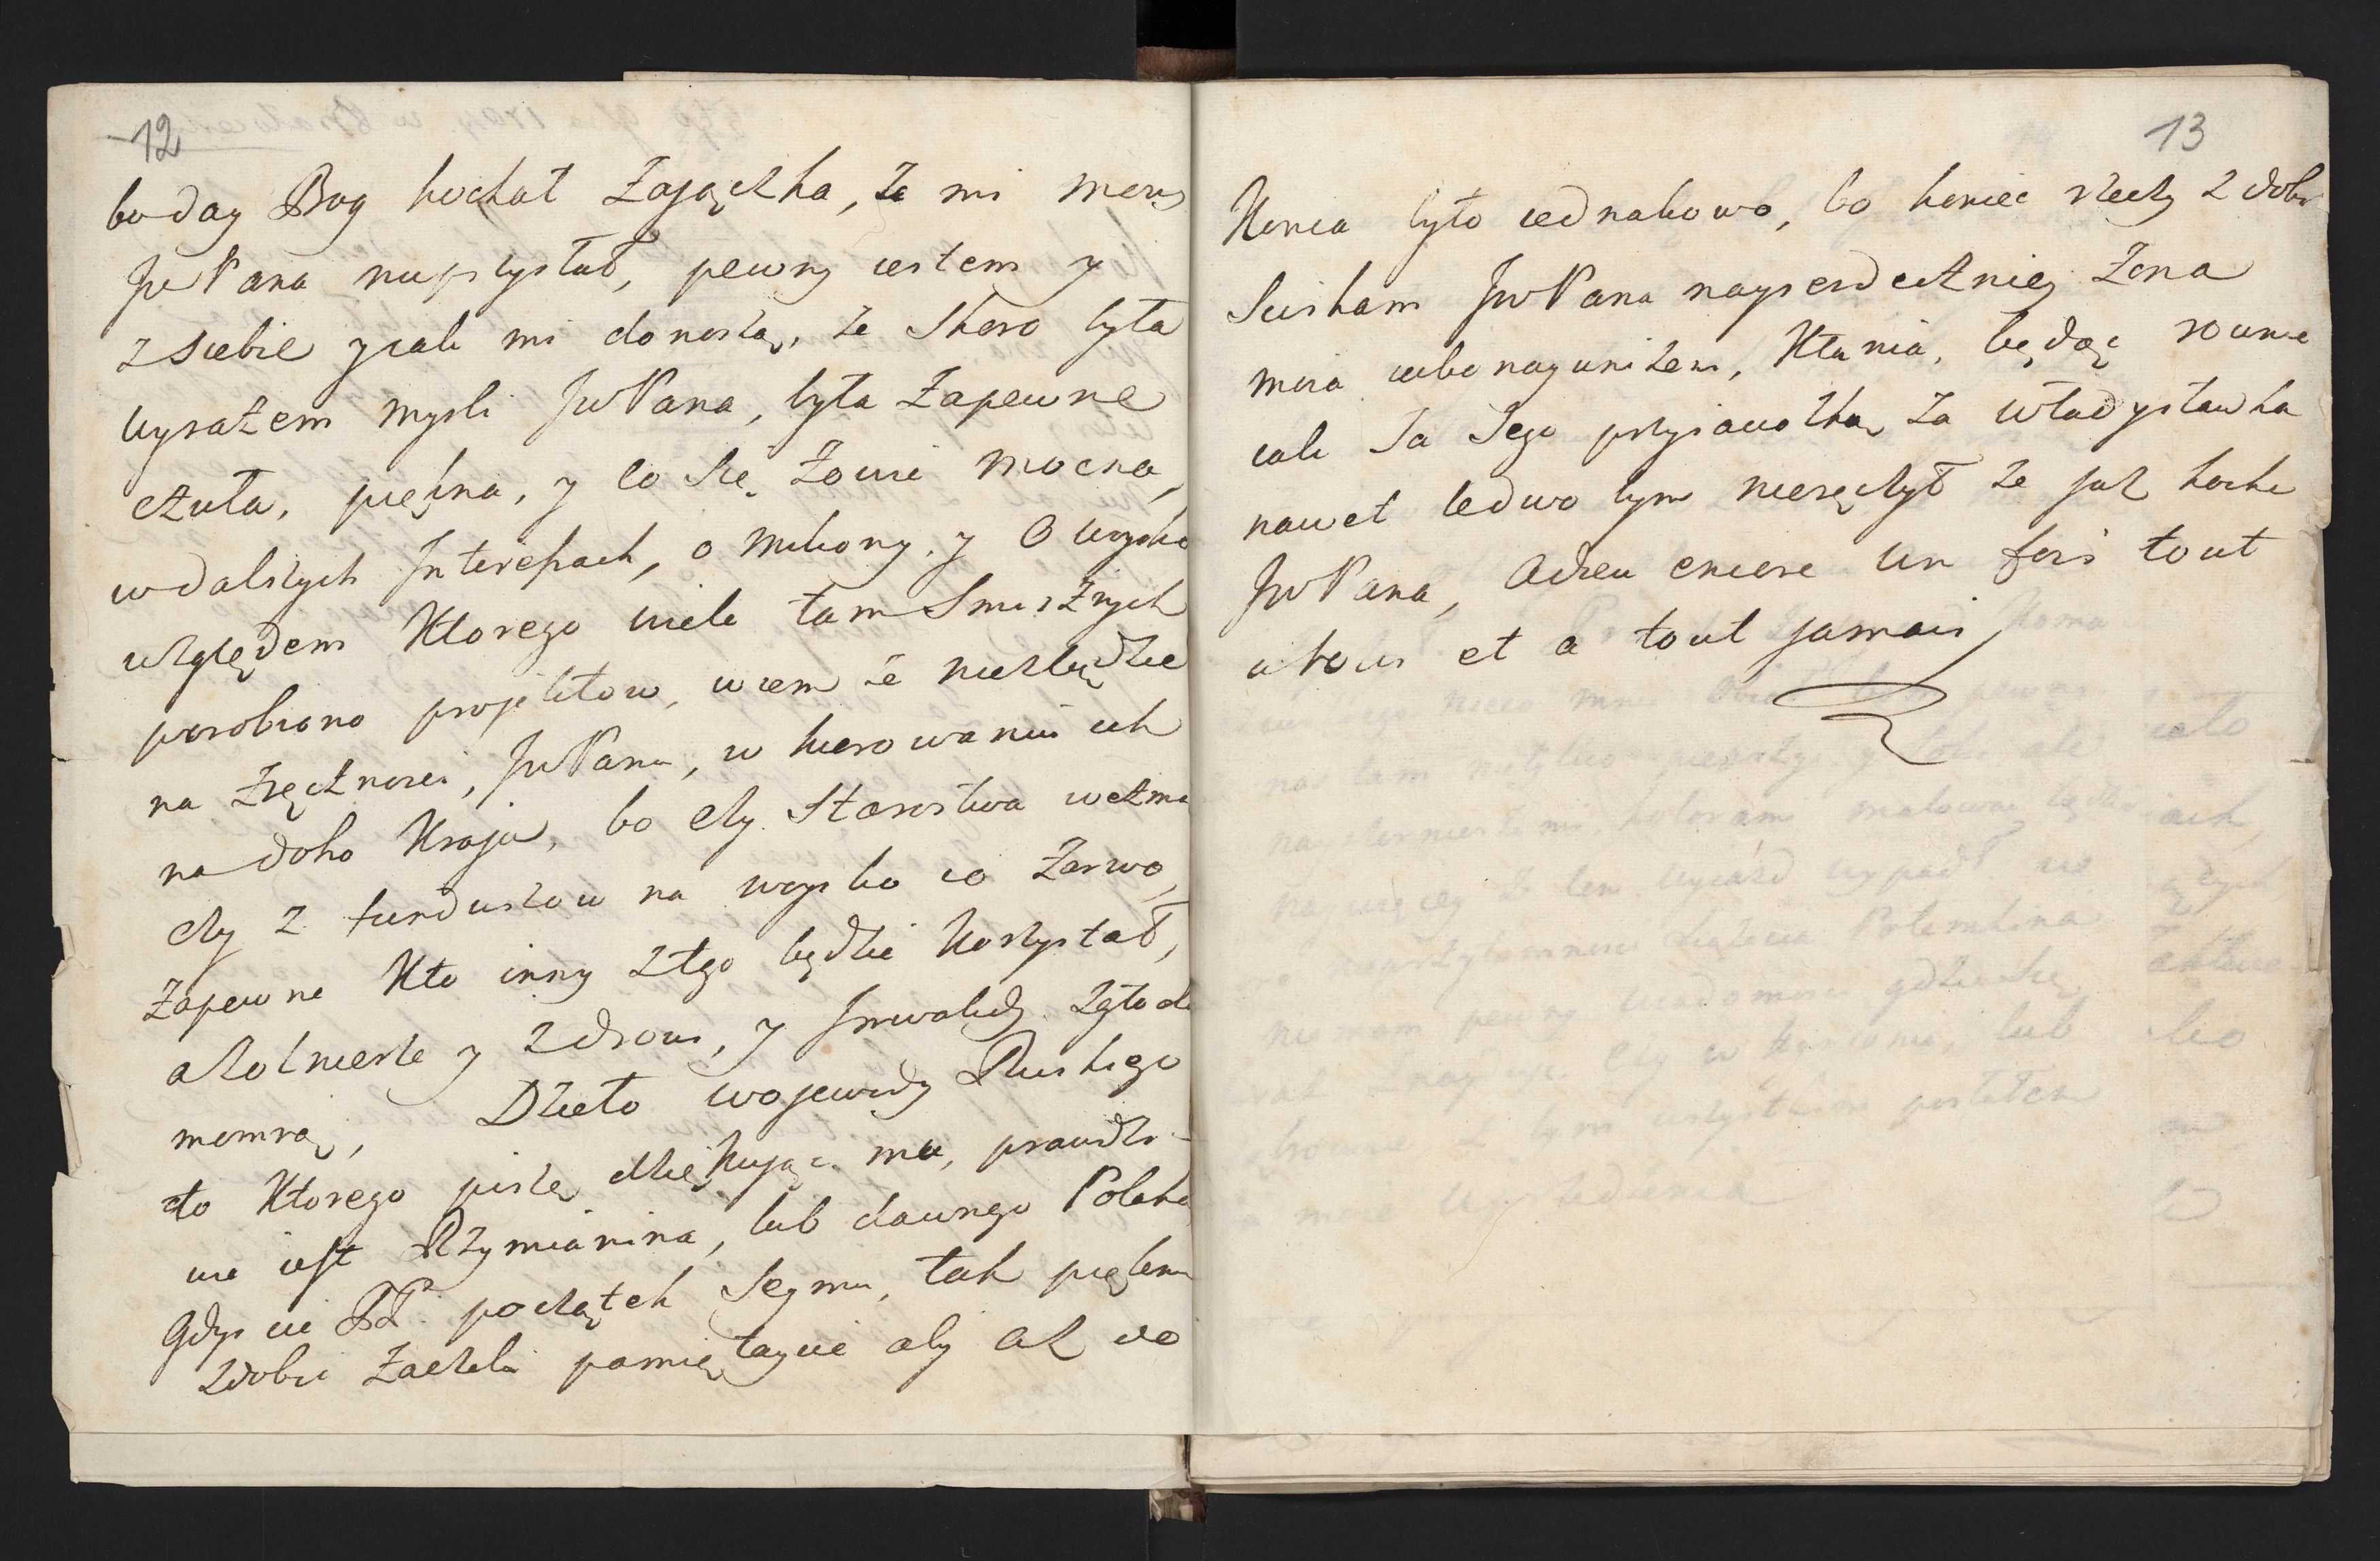 12
boday Bog kochał Zajączka, że mi mowy
JwPana nieprzysłał, pewny iestem y
z siebie y iak mi donoszą, że skoro była
wyrazem mysli JwPana, była zapewne
czuła, piękna, y co się zowie mocna,
w dalszych Interessach, o miliony, y o woysko
względem ktorego wiele tam smiesznych
porobiono projektow, wiem że niezbędzie
na zręcznosci, JwPanu, w kierowaniu ich
na dobo kraju, bo czy starostwa wezmą
czy z funduszow na woysko co zerwą,
zapewne kto inny z tego będzie korzystał,
a żołnierze y zdrowi, y Inwalidzi z głodu
pomrą, Dzieło wojewody Ruskiego
do ktorego piszę dziękując mu, prawdzi-
wie iest Rzymianina, lub dawnego Polaka
Gdyscie PP. początek Seymu, tak pięknie
zdobić zaczeli pamiętaycie aby aż do
13
konca było iednakowo, bo koniec rzeczy zdobi
sciskam JwPana nayserdeczniey żona
moia iak nayunizeni, kłania, będąc rownie
iak Ja Jego przyiaciołką za Władysławka
nawet ledwo bym nieręczył że już kocha
JwPana, adieu encore un fois tout
a vous et a tout jamais